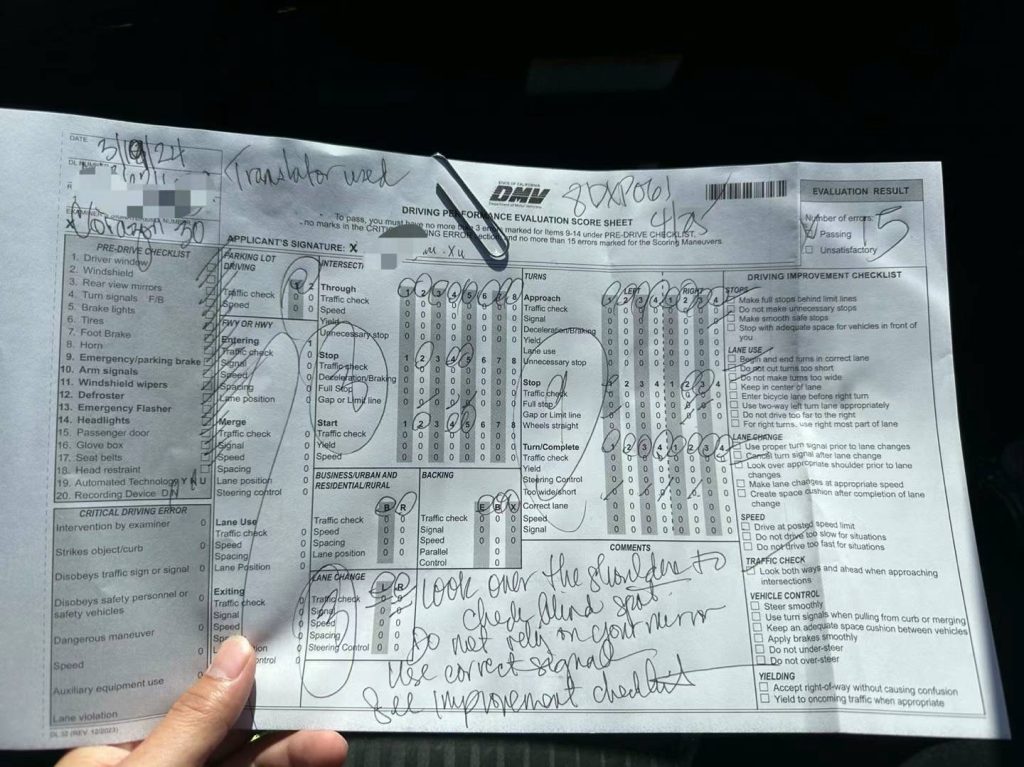 DATE
3/19/24
Translator used
STATE OF CALIFORNIA
DMV
Department of Motor Vehicles
8DXP061
DRIVING PERFORMANCE EVALUATION SCORE SHEET
To pass, you must have no more than 3 errors marked for Items 9-14 under PRE-DRIVE CHECKLIST,
no marks in the CRITICAL DRIVING ERROR section, and no more than 15 errors marked for the Scoring Maneuvers.
EVALUATION RESULT
Number of errors: 15
Passing
Unsatisfactory
APPLICANT'S SIGNATURE: X
PRE-DRIVE CHECKLIST
1. Driver window
2. Windshield
3. Rear view mirrors
4. Turn signals F/B
5. Brake lights
6. Tires
7. Foot Brake
8. Horn
9. Emergency/parking brake
10. Arm signals
11. Windshield wipers
12. Defroster
13. Emergency Flasher
14. Headlights
15. Passenger door
16. Glove box
17. Seat belts
18. Head restraint
19. Automated Technology Y N U
20. Recording Device
CRITICAL DRIVING ERROR
Intervention by examiner 0
Strikes object/curb 0
Disobeys traffic sign or signal 0
Disobeys safety personnel or
safety vehicles 0
Dangerous maneuver 0
Speed 0
Auxiliary equipment use 0
Lane violation
DL 32 (REV. 12/2023)
PARKING LOT
DRIVING 1 2
Traffic check 0 0
Speed 0 0
FWY OR HWY
Entering 1
Traffic check 0
Signal 0
Speed 0
Spacing 0
Lane position 0
Merge
Traffic check 0
Signal 0
Speed 0
Lane position 0
Spacing 0
Steering control 0
Lane Use
Traffic check 0
Speed 0
Spacing 0
Lane Position 0
Exiting
Traffic check 0
Signal 0
Speed 0
Through 1 2 3 4 5 6 7 8
Traffic check 0 0 0 0 0 0 0 0
Speed 0 0 0 0 0 0 0 0
Yield 0 0 0 0 0 0 0 0
Unnecessary stop 0 0 0 0 0 0 0 0
Stop 1 2 3 4 5 6 7 8
Traffic check 0 0 0 0 0 0 0 0
Deceleration/Braking 0 0 0 0 0 0 0 0
Full Stop 0 0 0 0 0 0 0 0
Gap or Limit line 0 0 0 0 0 0 0 0
Start 1 2 3 4 5 6 7 8
Traffic check 0 0 0 0 0 0 0 0
Yield 0 0 0 0 0 0 0 0
Speed 0 0 0 0 0 0 0 0
BUSINESS/URBAN AND
RESIDENTIAL/RURAL
B R
Traffic check 0 0
Speed 0 0
Spacing 0 0
Lane position 0 0
BACKING
E B X
Traffic check 0 0 0
Signal 0 0 0
Speed 0 0 0
Parallel 0
Control 0
LANE CHANGE L R
Traffic check 0 0
Signal 0 0
Speed 0 0
Spacing 0 0
Steering Control 0 0
TURNS
LEFT RIGHT
Approach 1 2 3 4 1 2 3 4
Traffic check
Signal
Deceleration/Braking
Yield
Lane use
Unnecessary stop
Stop 1 2 3 4 1 2 3 4
Traffic check
Full stop
Gap or Limit line
Wheels straight
Turn/Complete 1 2 3 4 1 2 3 4
Traffic check
Yield
Steering Control
Too wide/short
Correct lane
Speed
Signal
COMMENTS
Look over the shoulders to
check blind spot
Do not rely on your mirror
Use correct signal
See improvement checklist
DRIVING IMPROVEMENT CHECKLIST
STOPS
Make full stops behind limit lines
Do not make unnecessary stops
Make smooth safe stops
Stop with adequate space for vehicles in front of
you
LANE USE
Begin and end turns in correct lane
Do not cut turns too short
Do not make turns too wide
Keep in center of lane
Enter bicycle lane before right turn
Use two-way left turn lane appropriately
Do not drive too far to the right
For right turns, use right most part of lane
LANE CHANGE
Use proper turn signal prior to lane changes
Cancel turn signal after lane change
Look over appropriate shoulder prior to lane
changes
Make lane changes at appropriate speed
Create space cushion after completion of lane
change
SPEED
Drive at posted speed limit
Do not drive too slow for situations
Do not drive too fast for situations
TRAFFIC CHECK
Look both ways and ahead when approaching
intersections
VEHICLE CONTROL
Steer smoothly
Use turn signals when pulling from curb or merging
Keep an adequate space cushion between vehicles
Apply brakes smoothly
Do not under-steer
Do not over-steer
YIELDING
Accept right-of-way without causing confusion
Yield to oncoming traffic when appropriate